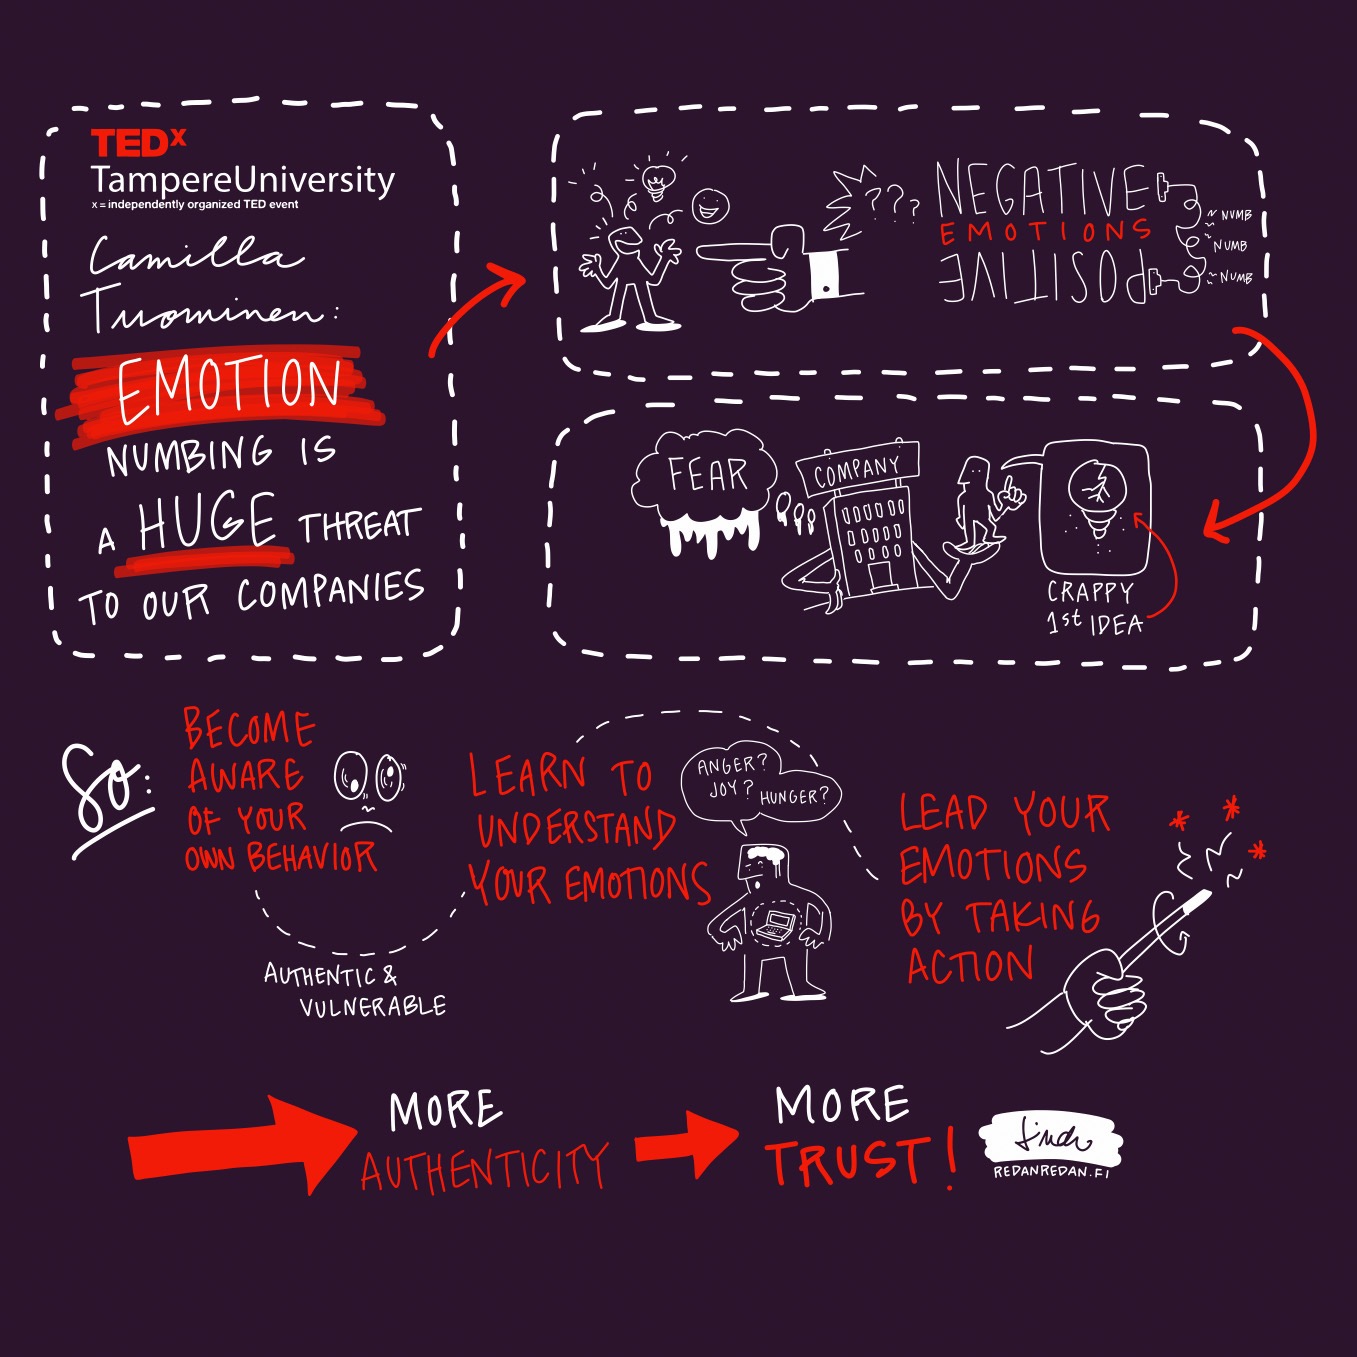 TEDx
TampereUniversity
x = independently organized TED event
Camilla
Tuominen:
EMOTION
NUMBING IS
A HUGE THREAT
TO OUR COMPANIES
???
NEGATIVE
EMOTIONS
POSITIVE
NUMB
NUMB
NUMB
FEAR
COMPANY
CRAPPY
1st IDEA
So:
BECOME
AWARE
OF YOUR
OWN BEHAVIOR
AUTHENTIC &
VULNERABLE
LEARN TO
UNDERSTAND
YOUR EMOTIONS
ANGER?
JOY? HUNGER?
LEAD YOUR
EMOTIONS
BY TAKING
ACTION
MORE
AUTHENTICITY
MORE
TRUST!
REDANREDAN.FI